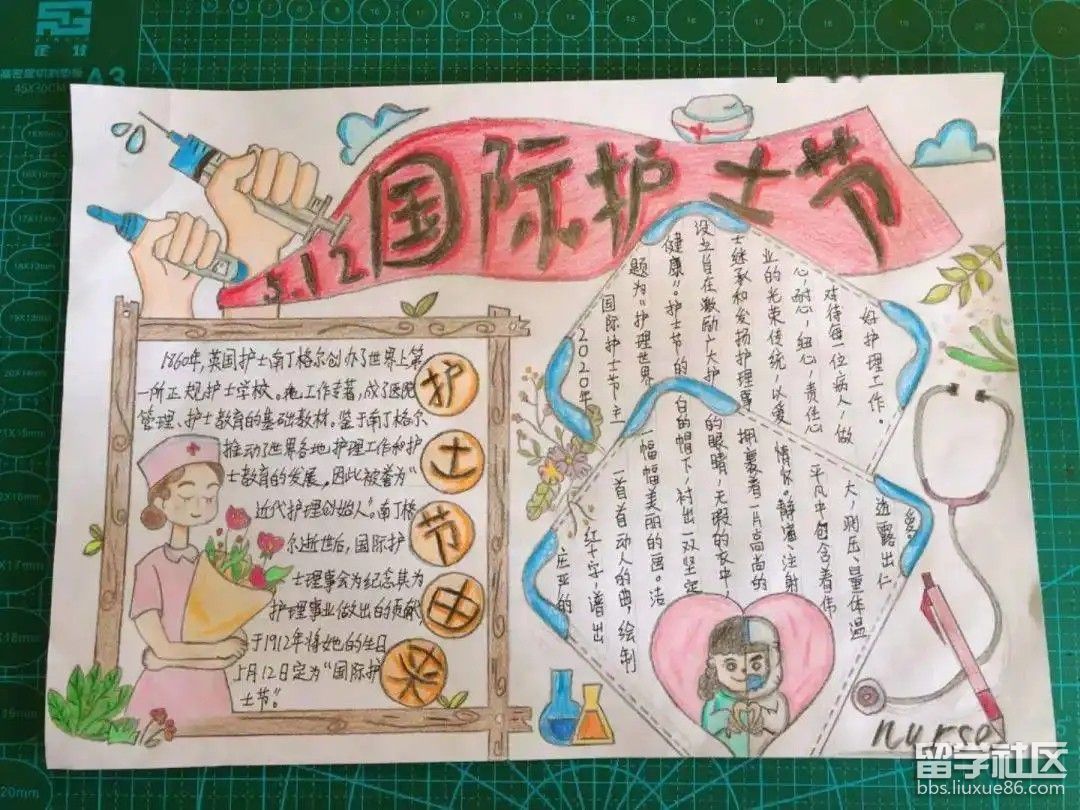 A3
45X30CM
5.12 国际护士节
1860年,英国护士南丁格尔创办了世界上第
一所正规护士学校。她工作专著,成了医院
管理、护士教育的基础教材。鉴于南丁格尔
推动了世界各地护理工作和护
士教育的发展,因此被誉为“
近代护理创始人”。南丁格
尔逝世后,国际护
士理事会为纪念其为
护理事业做出的贡献
于1912年将她的生日
5月12日定为“国际护
士节”。
护
士
节
由
来
2020年
国际护士节主
题为“护理世界
健康”。护士节的
设立旨在激励广大护
士继承和发扬护理事
业的光荣传统,以爱
心,耐心,细心,责任心
对待每一位病人,做
好护理工作。
庄严的
红十字谱出
一首首动人的曲,绘制
一幅幅美丽的画。洁
白的帽下,衬出一双坚定
的眼睛,无瑕的衣中,
拥裹着一片高尚的
情怀。静滴、注射
平凡中包含着伟
大,测压、量体温
透露出仁
爱。
nurse
留学社区
bbs.liuxue86.com